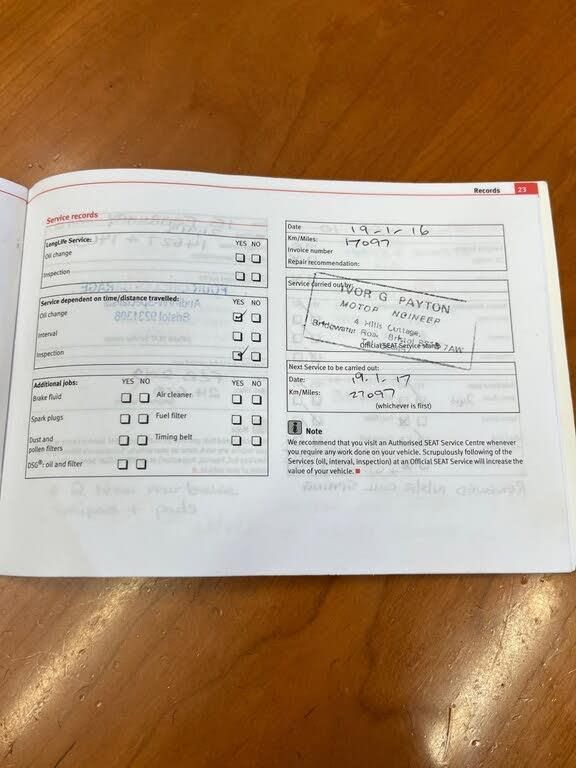 Records 23
Service records
LongLife Service:
YES NO
Oil change
Inspection
Service dependent on time/distance travelled:
YES NO
Oil change
Interval
Inspection
Additional jobs:
YES NO
YES NO
Brake fluid
Air cleaner
Spark plugs
Fuel filter
Dust and
pollen filters
Timing belt
DSG®: oil and filter
Date 19-1-16
Km/Miles: 17097
Invoice number
Repair recommendation:
Service carried out by:
IVOR G PAYTON
MOTOR NGINEER
4 Hills Cottage,
Bridgwater Road, Bristol 7AW
Official SEAT Service stamp
Next Service to be carried out:
Date: 19.1.17
Km/Miles: 27097
(whichever is first)
Note
We recommend that you visit an Authorised SEAT Service Centre whenever
you require any work done on your vehicle. Scrupulously following of the
Services (oil, interval, inspection) at an Official SEAT Service will increase the
value of your vehicle.